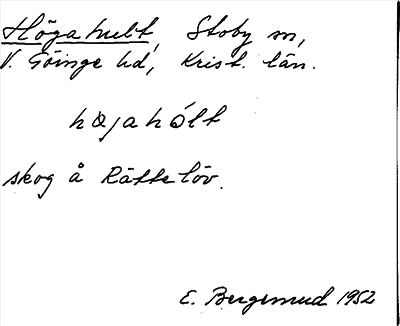 Högahult, Stoby sn,
V. Göinge hd, Krist. län.
høgahòlt
skog å Rättelöv.
E. Bergsmud 1952